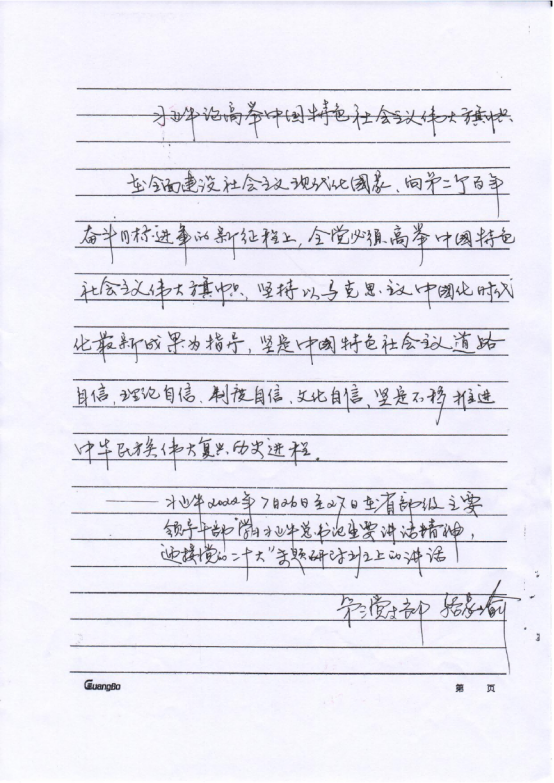 习近平论高举中国特色社会主义伟大旗帜
在全面建设社会主义现代化国家、向第二个百年
奋斗目标进军的新征程上,全党必须高举中国特色
社会主义伟大旗帜,坚持以马克思主义中国化时代
化最新成果为指导,坚定中国特色社会主义道路
自信、理论自信、制度自信、文化自信,坚定不移推进
中华民族伟大复兴历史进程。
——习近平2022年7月26日至27日在省部级主要
领导干部“学习习近平总书记重要讲话精神,
迎接党的二十大”专题研讨班上的讲话
第三党支部
GuangBo
第 页